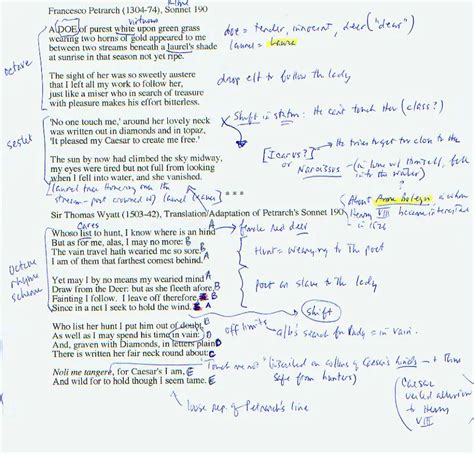 Francesco Petrarch (1304-74), Sonnet 190
virtuous
A DOE of purest white upon green grass
wearing two horns of gold appeared to me
between two streams beneath a laurel's shade
at sunrise in that season not yet ripe.
doe = tender, innocent, deer ("dear")
laurel = Laura
octave
The sight of her was so sweetly austere
that I left all my work to follow her,
just like a miser who in search of treasure
with pleasure makes his effort bitterless.
drop all to follow the lady
sestet
'No one touch me,' around her lovely neck
was written out in diamonds and in topaz,
'It pleased my Caesar to create me free.'
Shift in status: He can't touch her (class?)
The sun by now had climbed the sky midway,
my eyes were tired but not full from looking
when I fell into water, and she vanished.
[Icarus?]
He tries to get too close to the
or Narcissus - (in love w/ himself, fell into the water)
(laurel tree towering over the
stream - poet covered w/ laurel leaves)
***
About Anne Boleyn
Henry VIII became interested
in 1526
Sir Thomas Wyatt (1503-42), Translation/Adaptation of Petrarch's Sonnet 190
Cares
Whoso list to hunt, I know where is an hind A
But as for me, alas, I may no more: B
The vain travail hath wearied me so sore, B
I am of them that farthest cometh behind. A
female red deer
Hunt = wearying to the poet
Octave
rhyme
scheme
Yet may I by no means my wearied mind A
Draw from the Deer: but as she fleeth afore, B
Fainting I follow. I leave off therefore, B
Since in a net I seek to hold the wind. A
poet as slave to the lady
shift
Who list her hunt I put him out of doubt,
As well as I may spend his time in vain: D
And, graven with Diamonds, in letters plain D
There is written her fair neck round about: C
off limits
search for lady = in vain.
Noli me tangere, for Caesar's I am, E
And wild for to hold though I seem tame. E
"Touch me not" (inscribed on collars of Caesar's hinds
safe from hunters)
loose rep. of Petrarch's line
Caesar
veiled allusion
to Henry
VIII